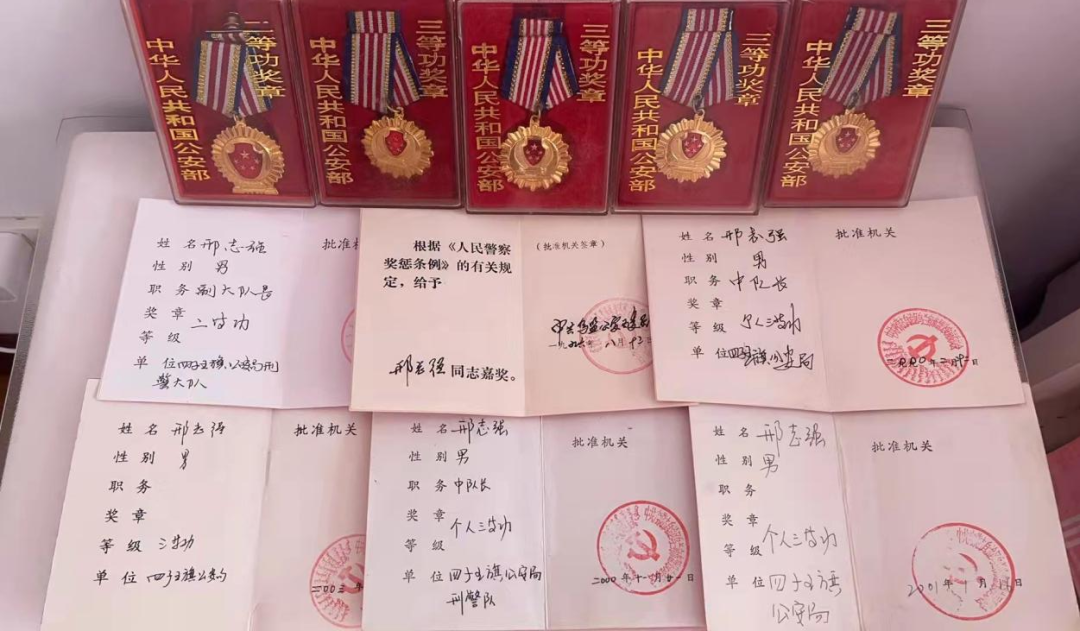 二等功奖章
中华人民共和国公安部
三等功奖章
中华人民共和国公安部
三等功奖章
中华人民共和国公安部
三等功奖章
中华人民共和国公安部
三等功奖章
中华人民共和国公安部
姓名 邢志强
性别 男
职务 副大队长
奖章
等级 二等功
单位 四子王旗公安局刑
警大队
批准机关
根据《人民警察
奖惩条例》的有关规
定，给予
邢志强 同志嘉奖。
（批准机关签章）
姓名 邢志强
性别 男
职务 中队长
奖章
等级 个人三等功
单位 四子王旗公安局
批准机关
姓名 邢志强
性别 男
职务
奖章
等级 三等功
单位 四子王旗公安局
批准机关
姓名 邢志强
性别 男
职务 中队长
奖章
等级 个人三等功
单位 四子王旗公安局
刑警队
批准机关
2000年十一月廿一日
姓名 邢志强
性别 男
职务
奖章
等级 个人三等功
单位 四子王旗
公安局
批准机关
2001年1月 日